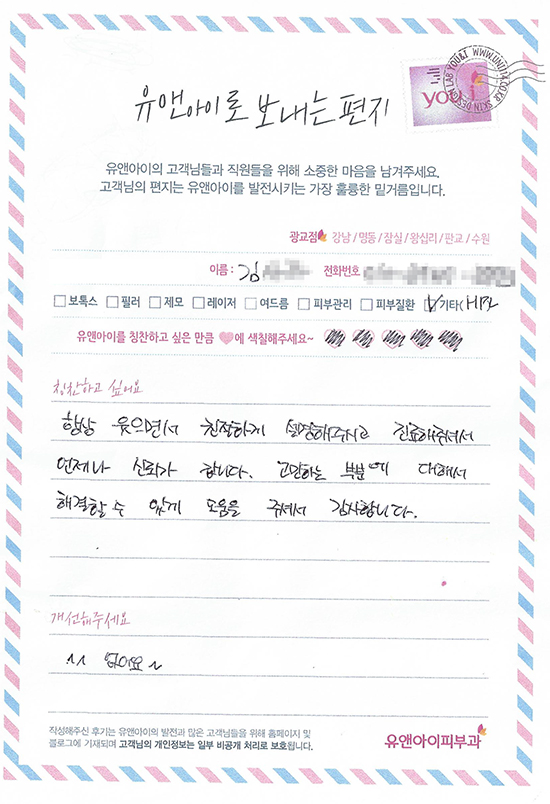 YOU&I WWW.UNIYA.CO.KR SKIN DESIGN LAB
you&i
유앤아이로 보내는 편지
유앤아이의 고객님들과 직원들을 위해 소중한 마음을 남겨주세요.
고객님의 편지는 유앤아이를 발전시키는 가장 훌륭한 밑거름입니다.
광교점 강남 / 명동 / 잠실 / 왕십리 / 판교 / 수원
이름 : 김 전화번호
보톡스 필러 제모 레이저 여드름 피부관리 피부질환 기타(
유앤아이를 칭찬하고 싶은 만큼 에 색칠해주세요~
칭찬하고 싶어요
항상 웃으면서 친절하게 설명해주시고 진료해주셔서
언제나 신뢰가 합니다. 고민하는 부분에 대해서
해결할 수 있게 도움을 주셔서 감사합니다.
개선해주세요
^^ 없어요~
작성해주신 후기는 유앤아이의 발전과 많은 고객님들을 위해 홈페이지 및
블로그에 기재되며 고객님의 개인정보는 일부 비공개 처리로 보호됩니다.
유앤아이피부과